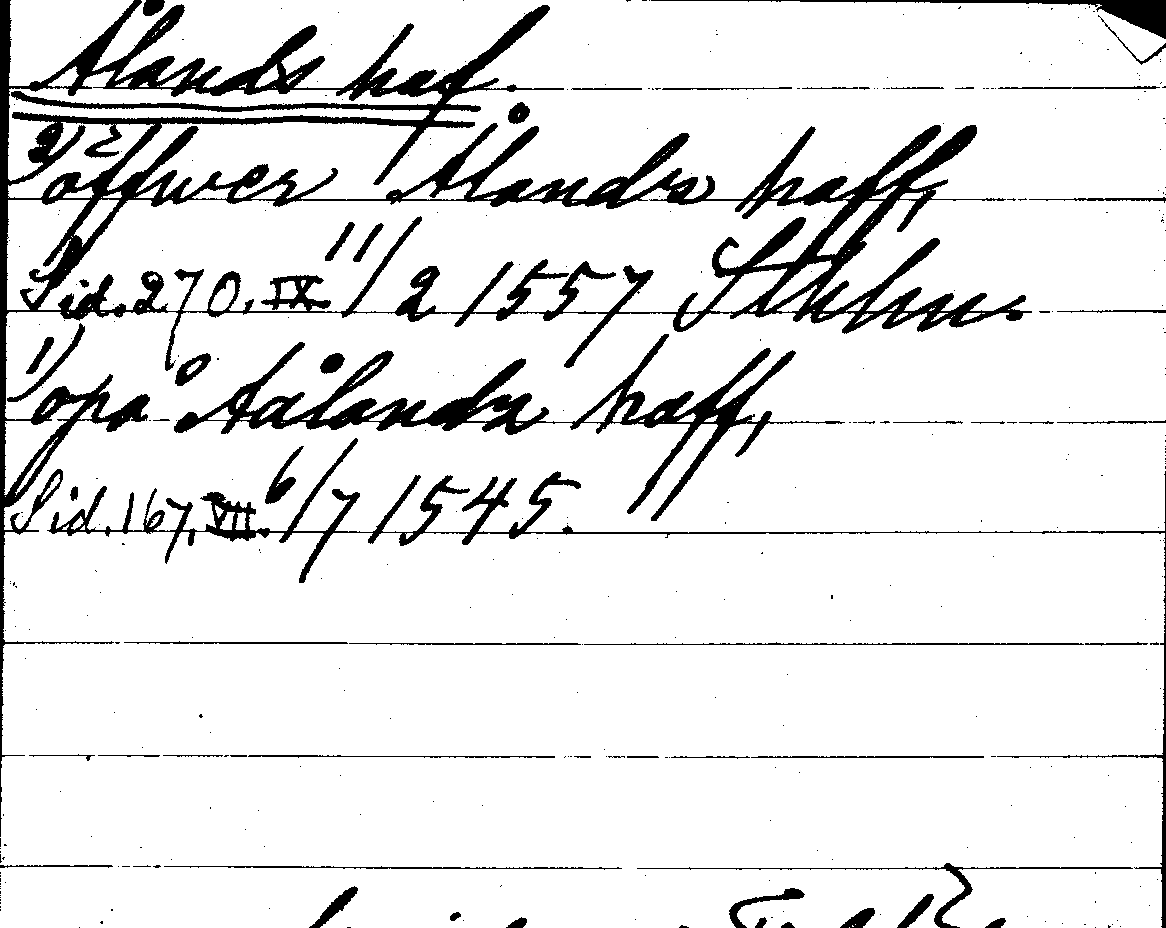 Ålands haf.
2) öffwer Ålands haff,
Sid. 270. IX. 11/2 1557 Sthlm.
1) opå Aålandz haff,
Sid. 167. VII. 6/7 1545.